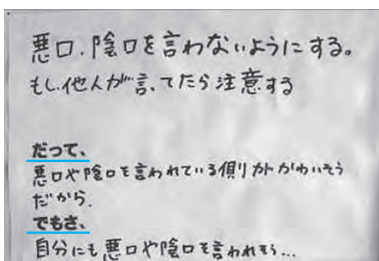 悪口、陰口を言わないようにする。
もし、他人が言ってたら注意する
だって、
悪口や陰口を言われている側がかわいそう
だから。
でもさ、
自分にも悪口や陰口を言われそう…